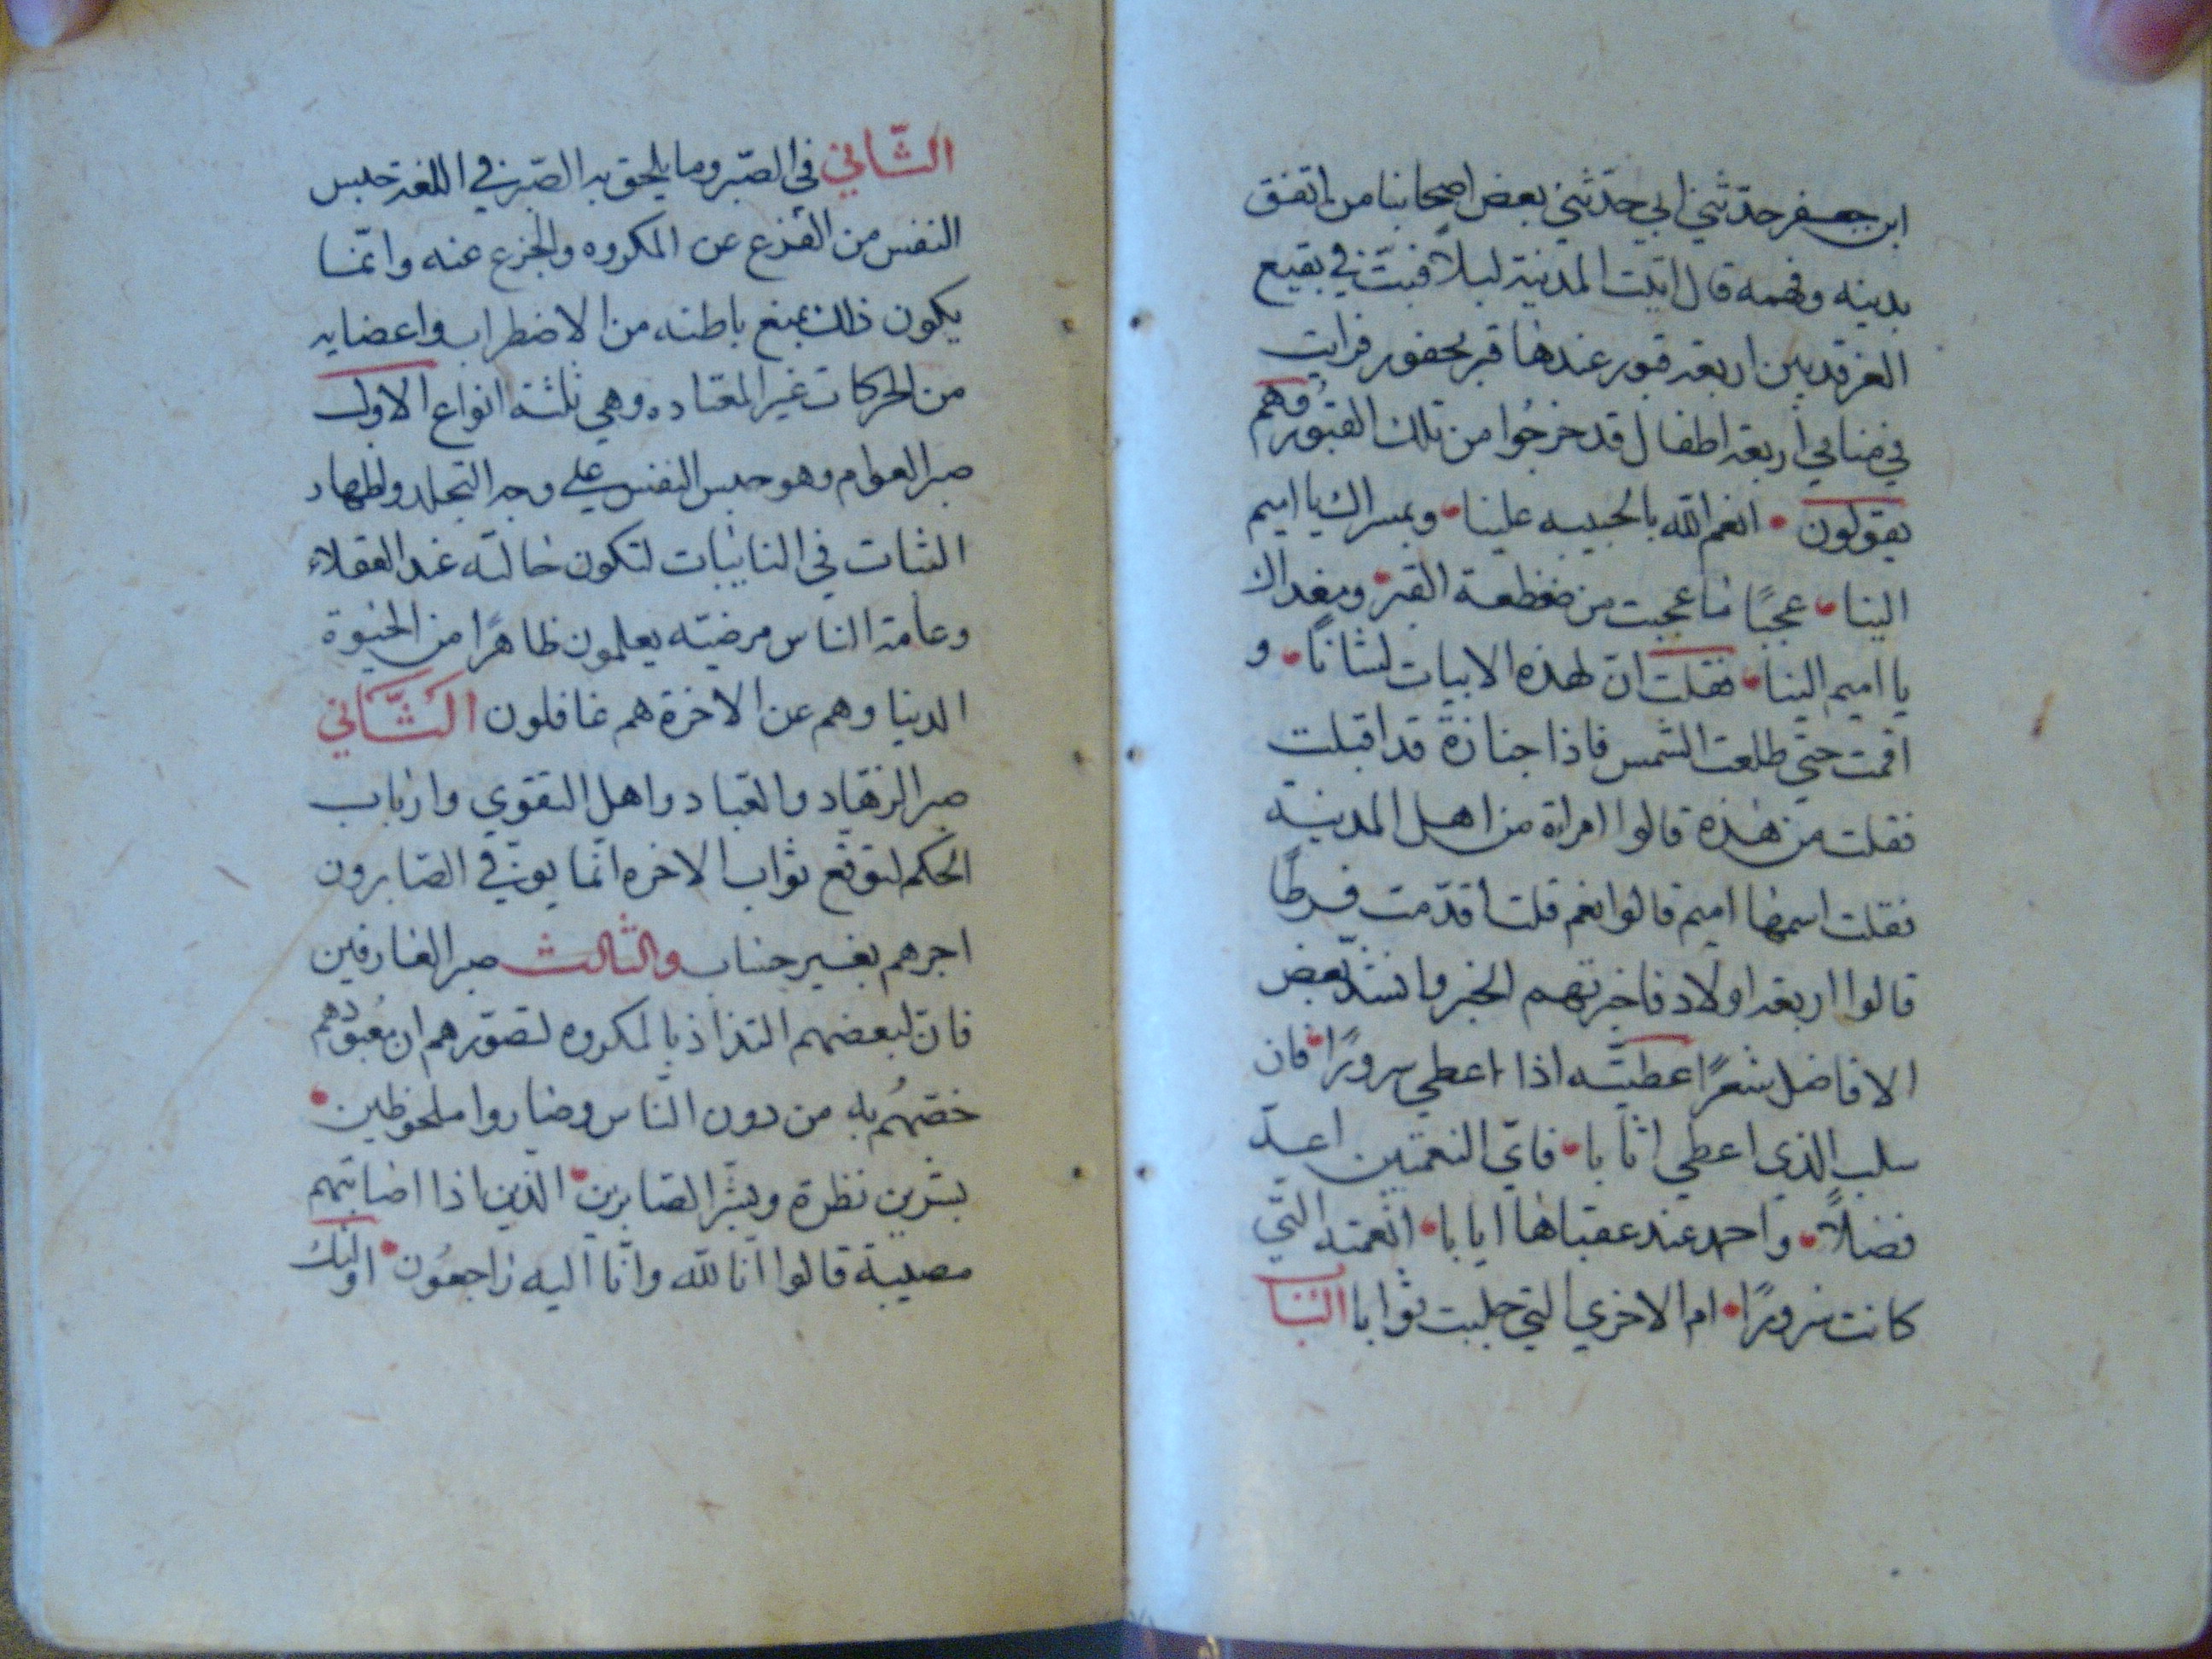 ابن جعفر حدثني ابي حدثني بعض اصحابنا من اتفق
بدينه وفهمه قال اتيت المدينة ليلاً فبتّ في بقيع
الغرقد بين اربعة قبور عندها قبر محفور فرايت
في منامي اربعة اطفال قد خرجُوا من تلك القبور وهم
يقولون • انعم الله بالحبيبه علينا • وبمسراك يا اميم
الينا • عجبًا ما عجبت من ضغطة القبر • ومغداك
يا اميم الينا • فقلت انّ لهذه الابيات لشانًا • و
اقمت حتّى طلعت الشمس فاذا جنازة قد اقبلت
فقلت من هذه قالوا امراة من اهل المدينة
فقلت اسمها اميم قالوا نعم قلت أقدّمت فرطًا
قالوا اربعة اولاد فاخبرتهم الخبر وانشد بعض
الافاضل شعرًا عطيّته اذا اعطي سرورًا • فان
سلب الذي اعطي اثابا • فايّ النعمتين اعدّ
فضلاً • واحمد عند عقباها ايابا • انعمته التّي
كانت سرورًا • ام الاخري التي جلبت ثوابا الباب
الثّاني في الصّبر وما يلحق به الصّبر في اللغة حبس
النفس من الفزع عن المكروه والجزع عنه وانّما
يكون ذلك بمنع باطنه من الاضطراب واعضايه
من الحركات غير المعتاده وهي ثلثة انواع الاول
صبر العوام وهو حبس النفس علي وجه التجلد واظهار
الثبات في النايبات لتكون حالته عند العقلاء
وعامة الناس مرضيّه يعلمون ظاهرًا من الحيوة
الدنيا وهم عن الاخرة هم غافلون الثّاني
صبر الزهّاد والعبّاد واهل التقوي وارباب
الحكم لتوقّع ثواب الاخره انّما يوفّي الصّابرون
اجرهم بغير حساب والثالث صبر العارفين
فان لبعضهم التذاذ بالمكروه لتصوّرهم ان معبُودهم
خصّهُم به من دون النّاس وصاروا ملحوظين •
بشرين نظرة وبشّر الصّابرين • الذين اذا اصابتهم
مصيبة قالوا انّا لله وانّا اليه راجعُون • اولئك